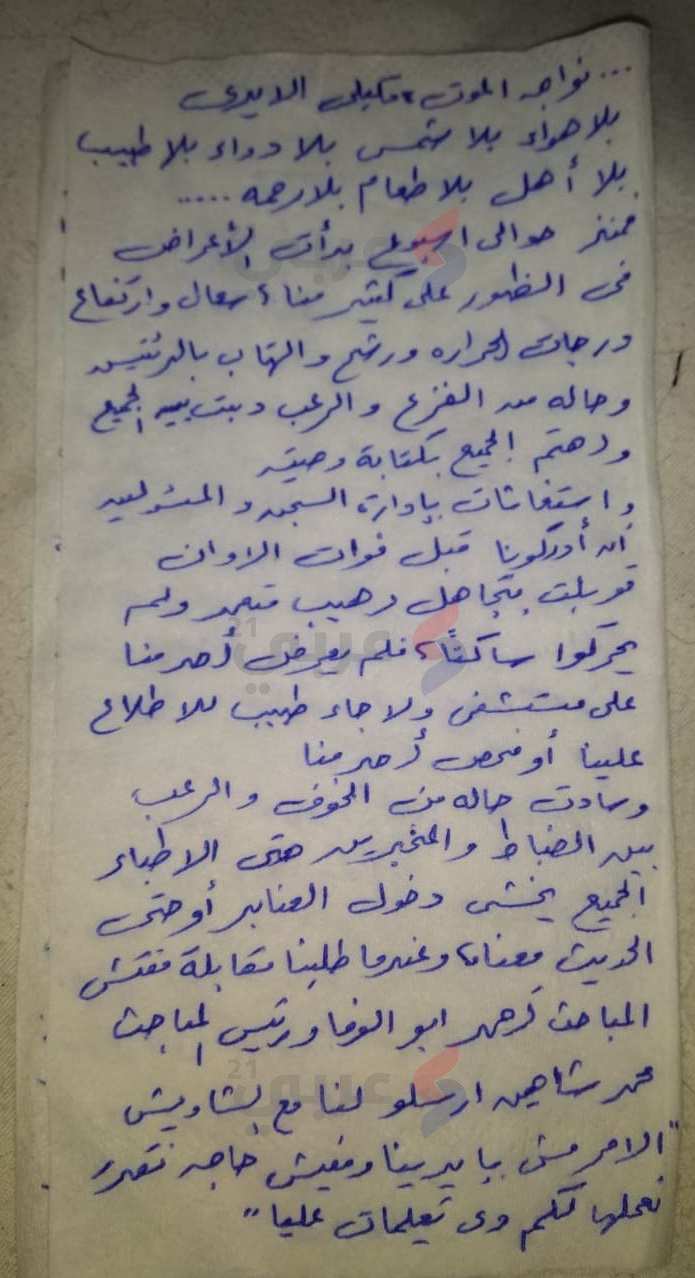 ... نواجه الموت مكبلى الايدى
بلا هواء بلا شمس بلا دواء بلا طبيب
بلا أهل بلا طعام بلا رحمه .....
فمنذ حوالى اسبوع بدأت الأعراض
فى الظهور على كثير منا، سعال وارتفاع
درجات الحراره ورشح والتهاب بالرئتين
وحاله من الفزع والرعب دبت بين الجميع
واهتم الجميع بكتابة وصيته
واستغاثات بإدارة السجن والمسئولين
أن أدركونا قبل فوات الاوان
قوبلت بتجاهل رهيب متعمد ولم
يحركوا ساكناً، فلم يعرض أحد منا
على مستشفى ولا جاء طبيب للاطلاع
علينا أو فحص أحد منا
وسادت حاله من الخوف والرعب
بين الضباط والمخبرين حتى الاطباء
الجميع يخشى دخول العنابر أو حتى
الحديث معنا، وعندما طلبنا مقابلة مفتش
المباحث أحمد ابو الوفا ورئيس المباحث
محمد شاهين ارسلو لنا مع الشاويش
"الامر مش بايدينا ومفيش حاجه نقدر
نعملها لكم دى تعليمات عليا"
عربي 21
عربي 21
عربي 21